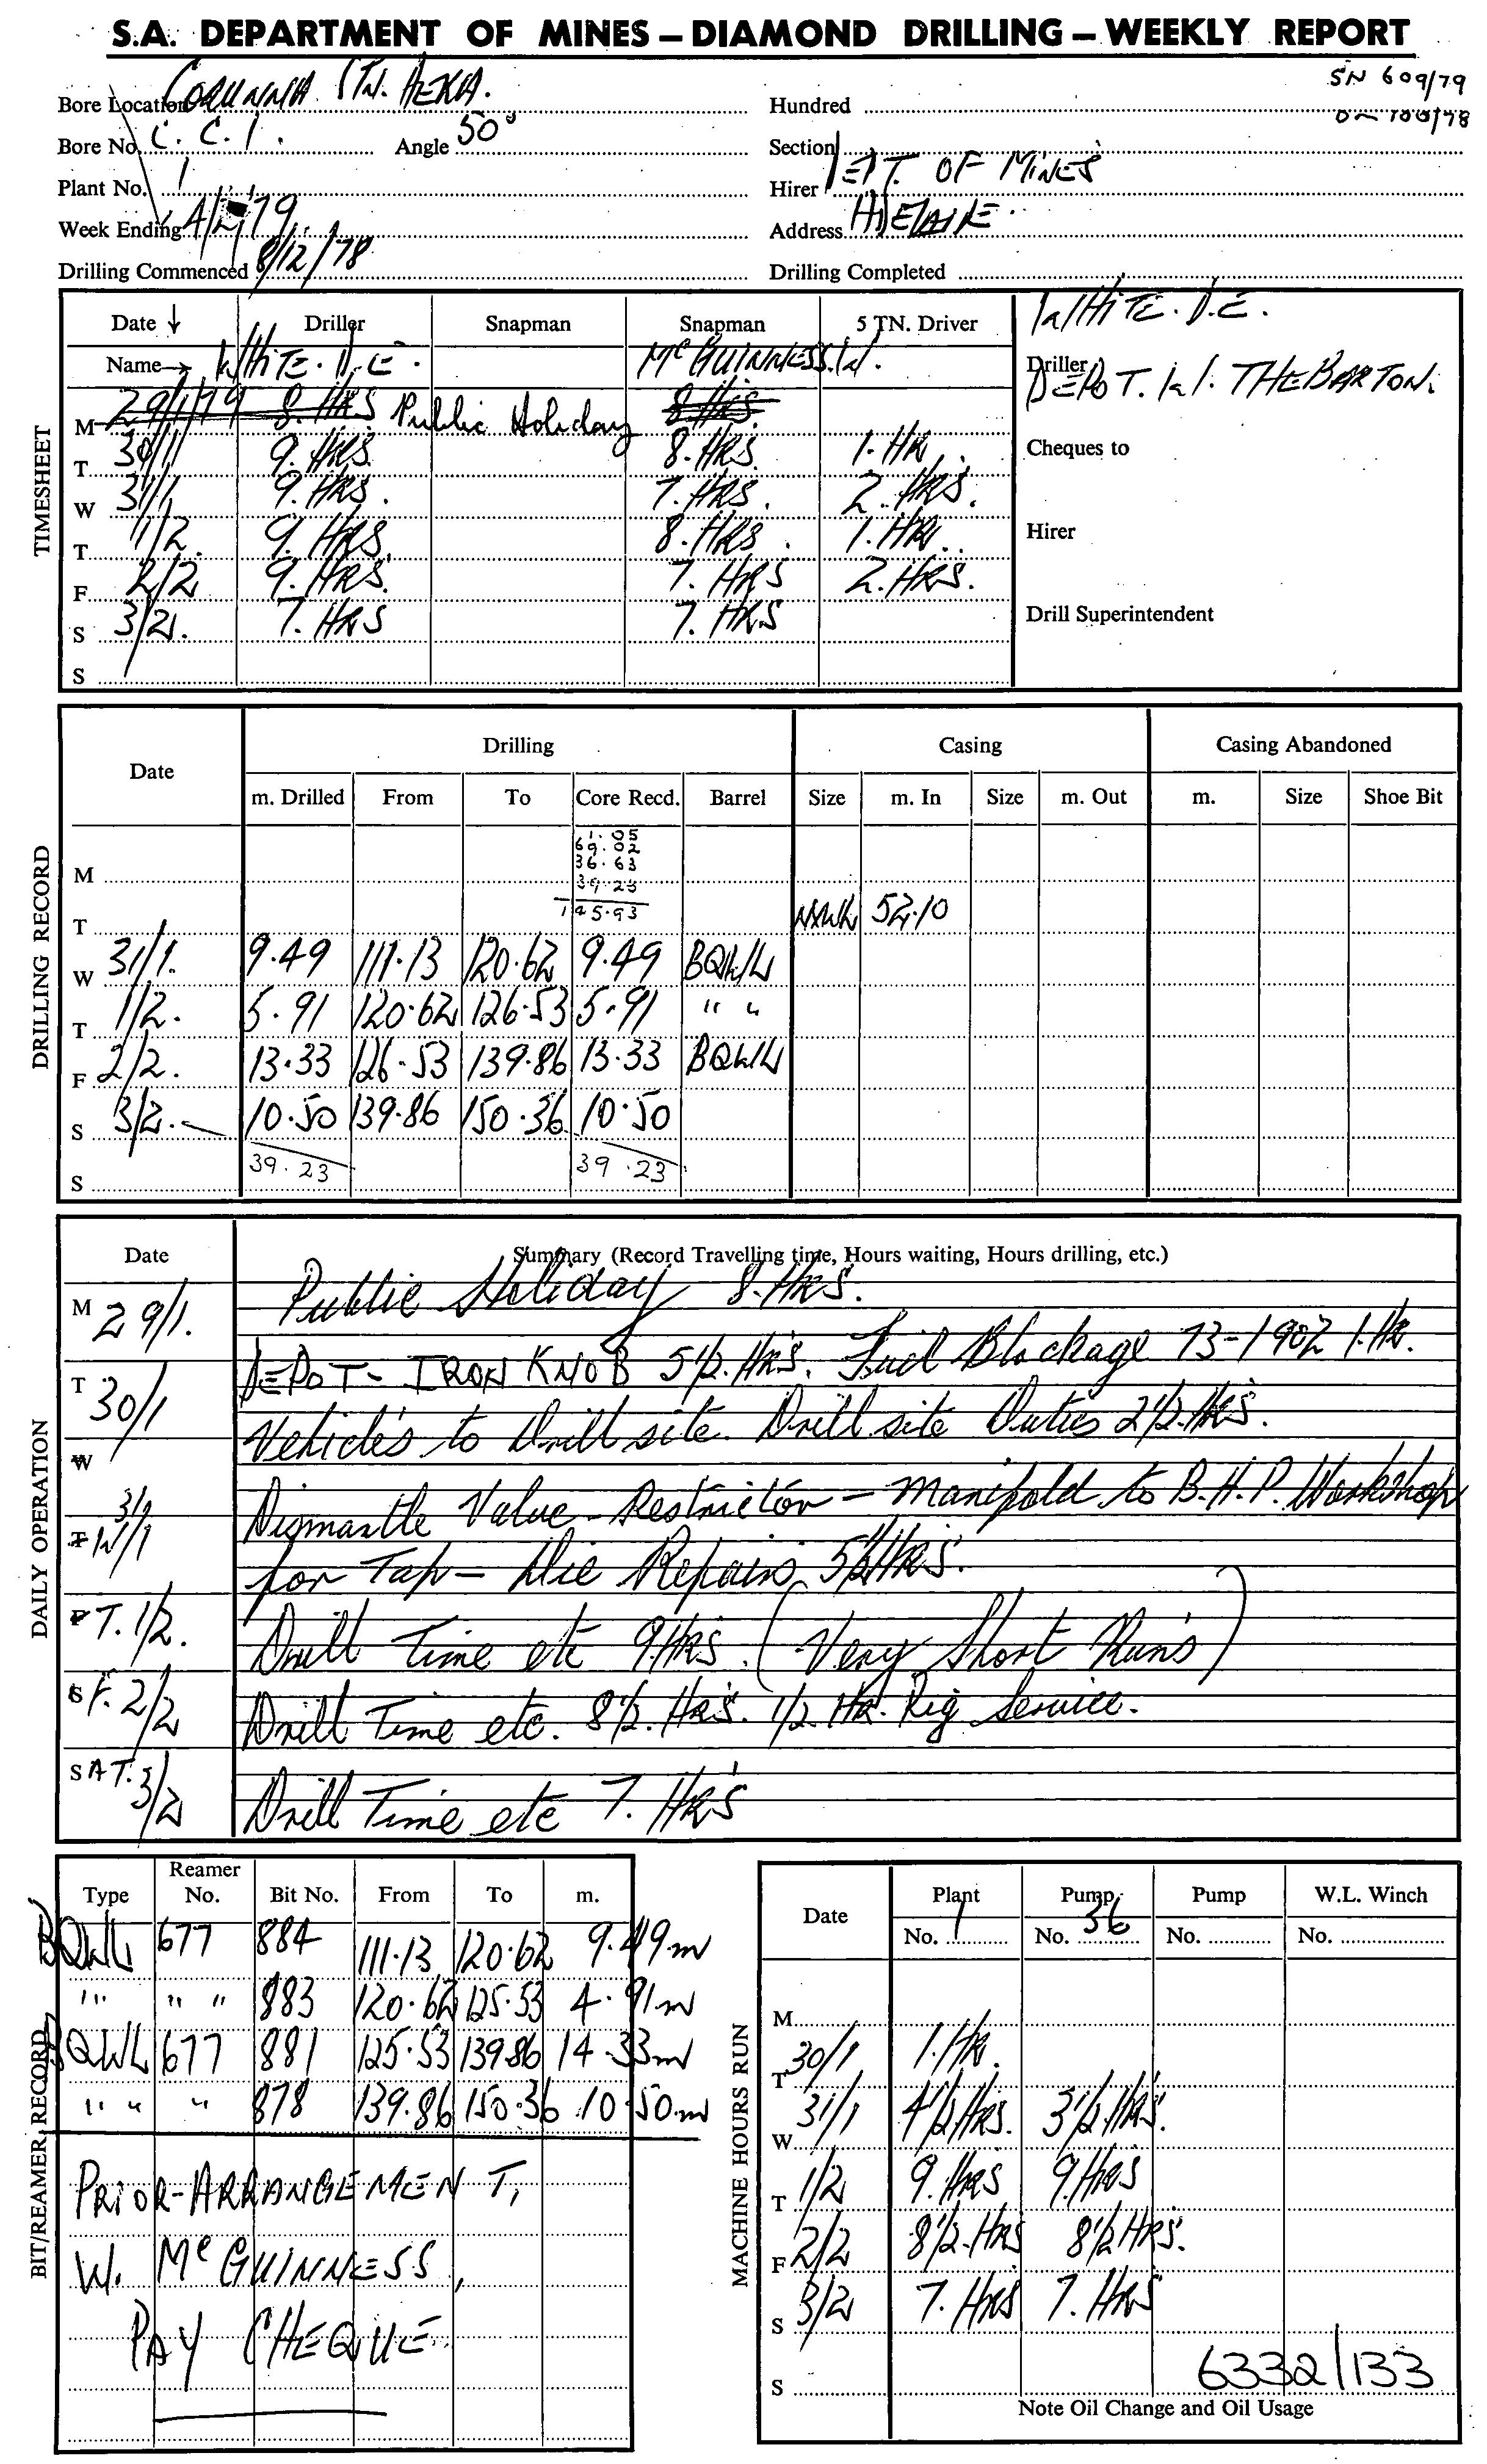 S.A. DEPARTMENT OF MINES – DIAMOND DRILLING – WEEKLY REPORT
SN 609/79
Bore Location CORUNNA STN. Hundred
Bore No. C.C.1. Angle 50° Section
Plant No. 1 Hirer DEPT. OF MINES
Week Ending 4/2/79 Address ADELAIDE.
Drilling Commenced 8/12/78 Drilling Completed
TIMESHEET
Date ↓ Driller Snapman Snapman 5 TN. Driver WHITE. D.E.
Name → WHITE. D.E. McGUINNESS.W. Driller DEPOT. W. THEBARTON.
M 29/1/79 8. HRS Public Holiday 8 HRS
T 30/1 9. HRS. 8. HRS. 1. HR. Cheques to
W 31/1 9. HRS. 7. HRS. 2. HRS.
T 1/2. 9. HRS. 8. HRS. 1. HR. Hirer
F 2/2 9. HRS. 7. HRS 2. HRS.
S 3/2. 7. HRS 7. HRS Drill Superintendent
S
DRILLING RECORD
Date Drilling Casing Casing Abandoned
m. Drilled From To Core Recd. Barrel Size m. In Size m. Out m. Size Shoe Bit
1.05
69.02
36.63
M 39.23
T 145.93 52.10
W 31/1. 9.49 111.13 120.62 9.49 BQWL
T 1/2. 5.91 120.62 126.53 5.91 " "
F 2/2. 13.33 126.53 139.86 13.33 BQWL
S 3/2. 10.50 139.86 150.36 10.50
S 39.23 39.23
DAILY OPERATION
Date Summary (Record Travelling time, Hours waiting, Hours drilling, etc.)
M 29/1. Public Holiday 8. HRS.
T 30/1 DEPOT – IRON KNOB 5 1/2. HRS. Fuel Blockage 13-1902 1. Hr.
Vehicles to Drill site. Drill site Duties 2 1/2. HRS.
W
31/1 Dismantle Valve – Restrictor – Manifold to B.H.P. Workshop
T W for Tap – Die Repairs 5 1/2 HRS.
F T. 1/2. Drill Time etc 9. HRS. (Very Short Runs)
S F. 2/2 Drill Time etc. 8 1/2. HRS. 1/2 Hr. Rig Service.
SAT. 3/2 Drill Time etc 7. HRS
BIT/REAMER RECORD
Type Reamer No. Bit No. From To m.
BQWL 677 884 111.13 120.62 9.49m
" " " " 883 120.62 125.53 4.91m
BQWL 677 881 125.53 139.86 14.33m
" " " 878 139.86 150.36 10.50m
PRIOR-ARRANGEMENT,
W. McGUINNESS,
PAY CHEQUE.
MACHINE HOURS RUN
Date Plant Pump Pump W.L. Winch
No. 1 No. 36 No. No.
M
T 30/1 1. Hr.
W 31/1 4 1/2 HRS. 3 1/2 HRS.
T 1/2 9. HRS 9. HRS
F 2/2 8 1/2. HRS 8 1/2 HRS.
S 3/2 7. HRS 7. HRS
S 6332/133
Note Oil Change and Oil Usage